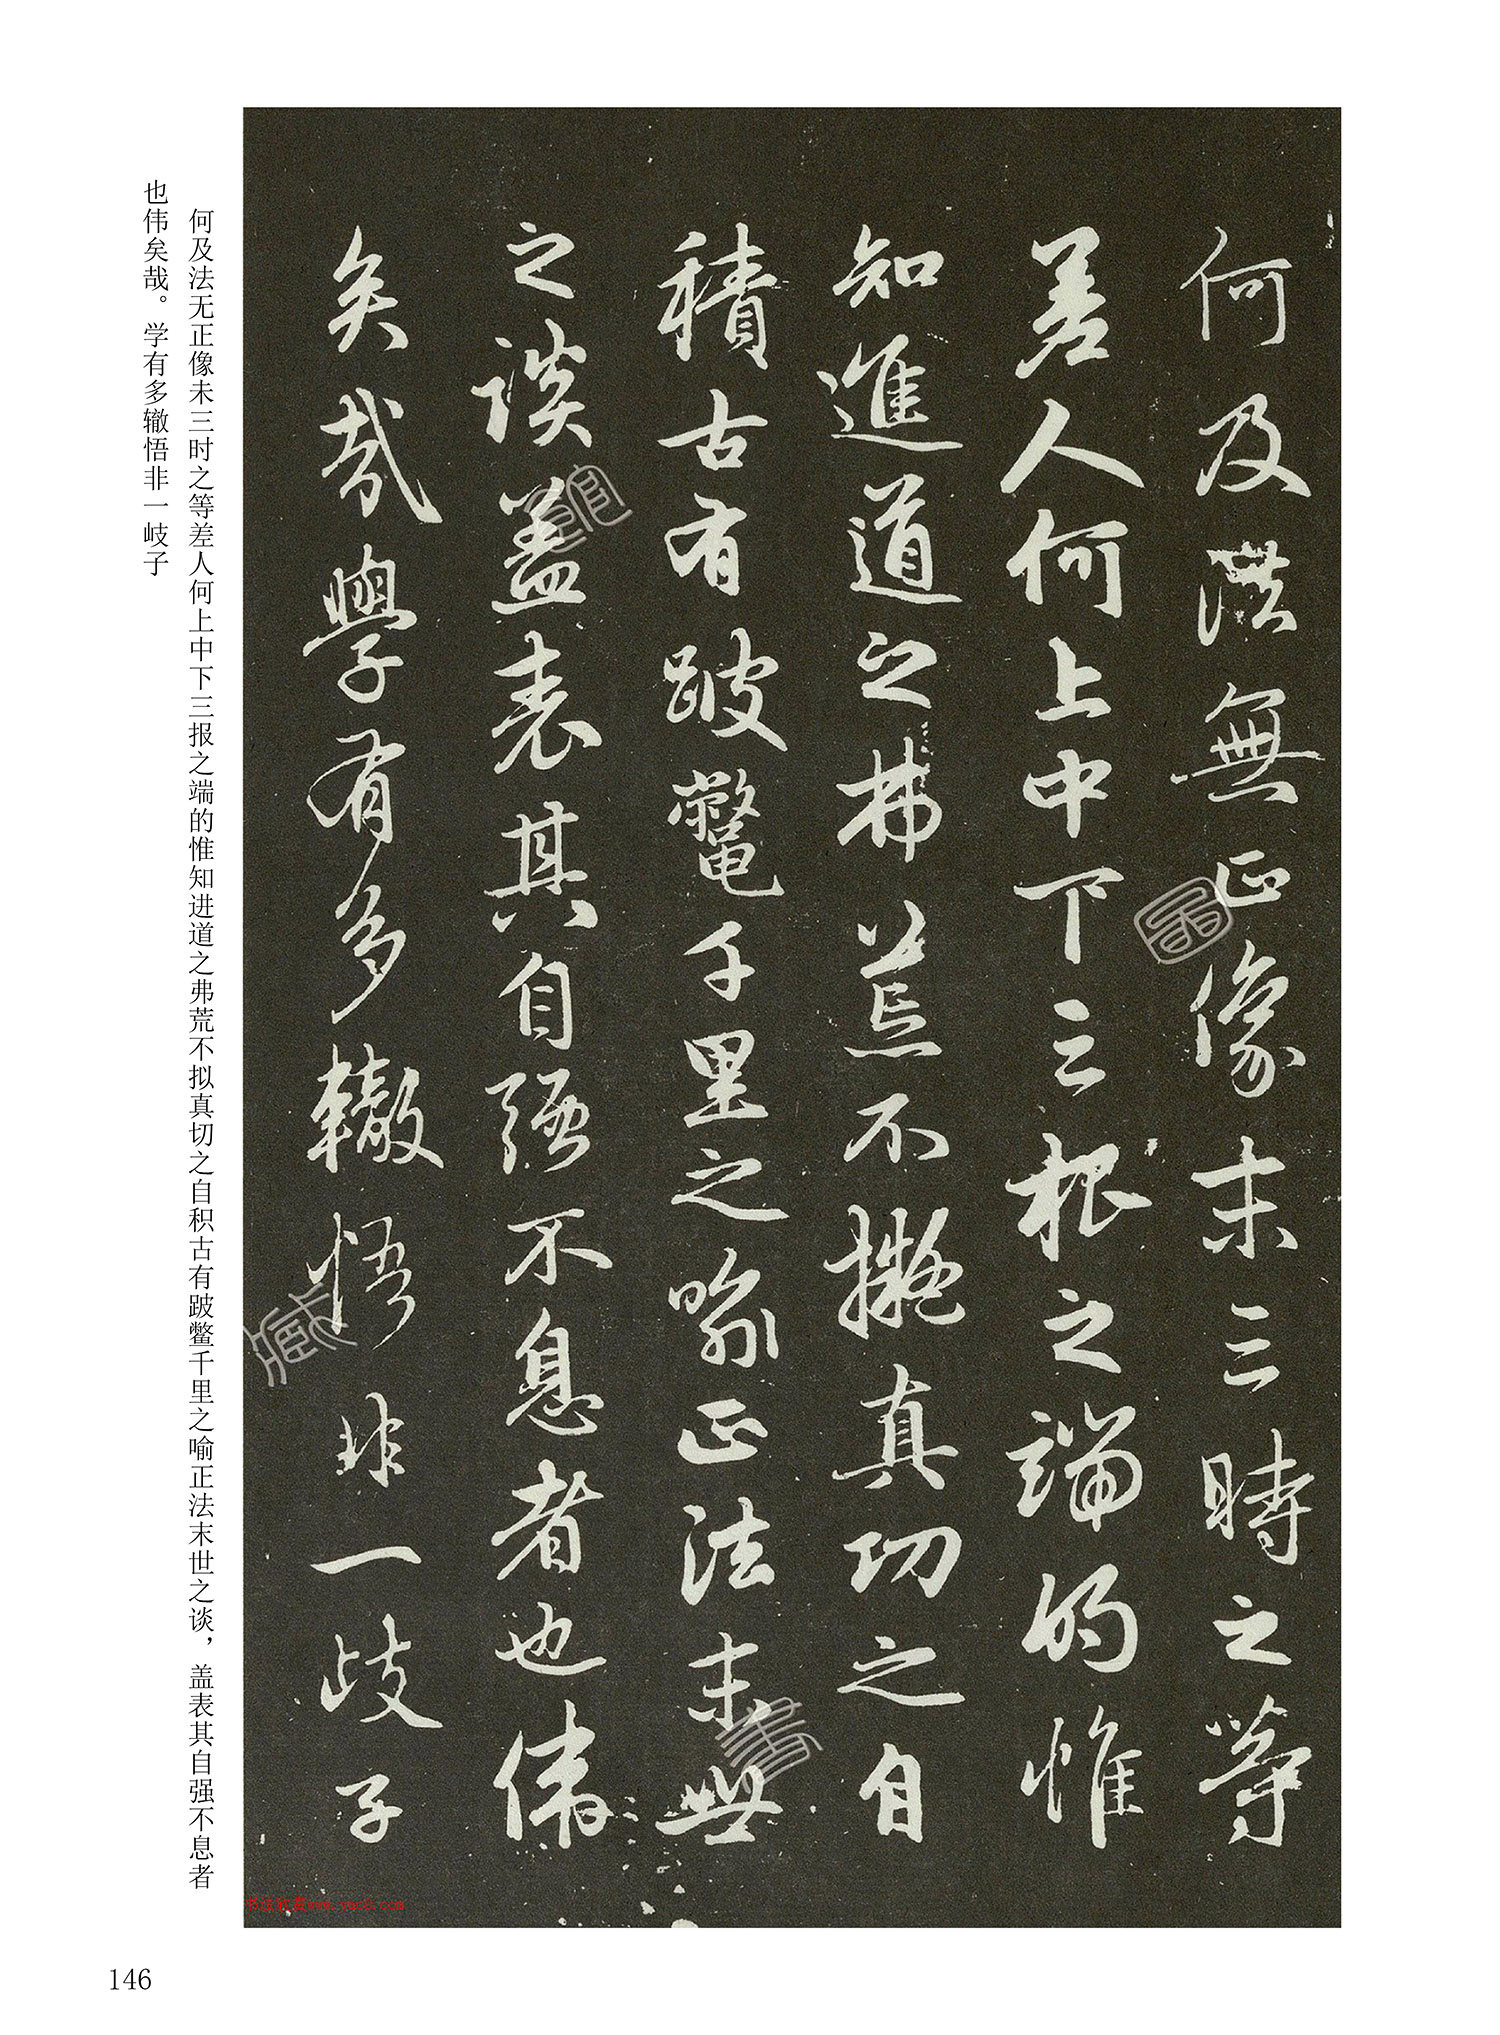 何及法無正像末三時之等
差人何上中下三根之端的惟
知進道之弗荒不擬真切之自
積古有跛鼈千里之喻正法末世
之談蓋表其自强不息者也偉
矣哉學有多轍悟非一歧子
何及法无正像未三时之等差人何上中下三报之端的惟知进道之弗荒不拟真切之自积古有跛鳖千里之喻正法末世之谈，盖表其自强不息者
也伟矣哉。学有多辙悟非一岐子
146